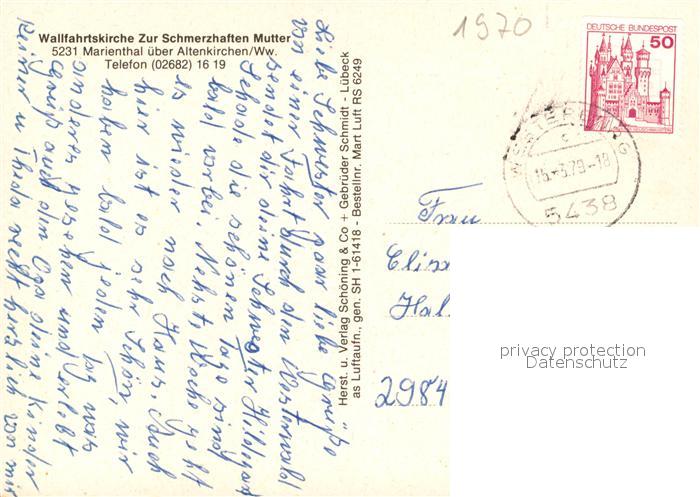 Wallfahrtskirche Zur Schmerzhaften Mutter
5231 Marienthal über Altenkirchen/Ww.
Telefon (02682) 16 19
Liebe Schwester paar liebe Grüße
von einer Fahrt durch den Westerwald
sendet dir deine Schwester Hildegard
Schade die schönen Tage sind
bald vorbei. Nächst. Woche geht
es wieder nach Haus. Auch
hier ist es sehr schön, wir
haben bald jeden Tag was
anderes gesehen und erlebt
Gruß auch an Opa deine Kinder
Reiner u Theda recht herzlich von mir
Herst. u. Verlag Schöning & Co + Gebrüder Schmidt - Lübeck
as Luftaufn., gen. SH 1-61418 - Bestellnr. Mart Luft RS 6249
1970
DEUTSCHE BUNDESPOST
50
WESTERBURG
c
15.-3.79-18
5438
Frau
Elis
Hal
2984
privacy protection
Datenschutz